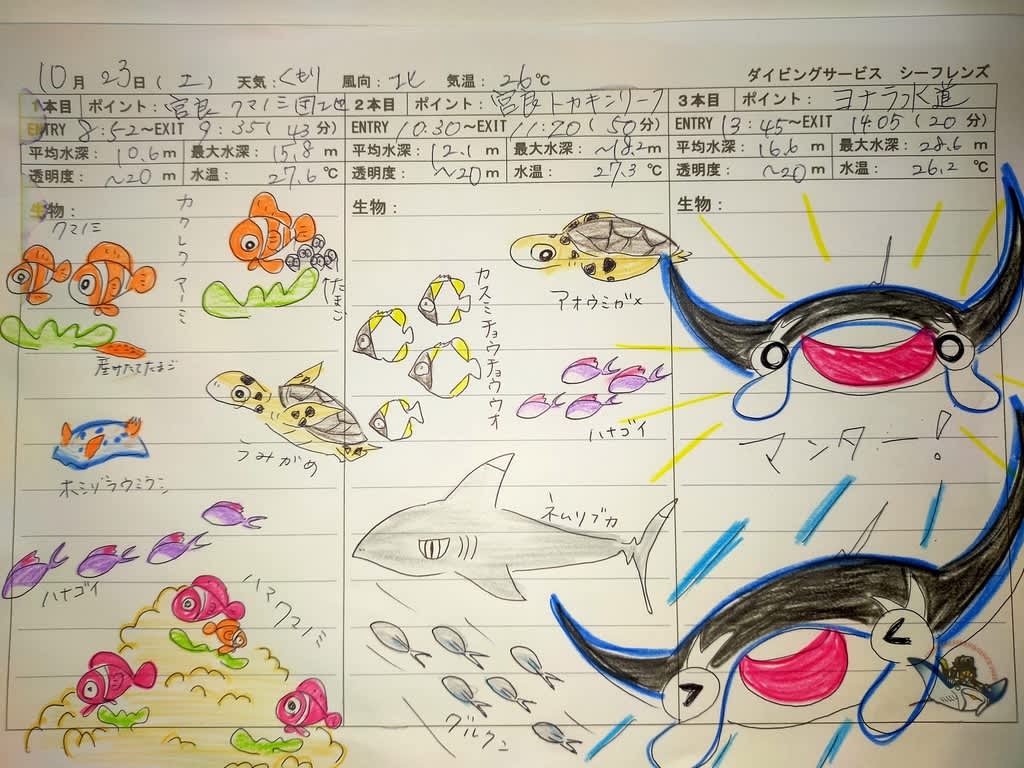 10月 23日(土) 天気:くもり 風向:北 気温:26℃ ダイビングサービス シーフレンズ
1本目 ポイント:宮良 クマノミ団地
ENTRY 8:52～EXIT 9:35(43分)
平均水深:10.6m 最大水深:15.8m
透明度:～20m 水温:27.6℃
生物:
クマノミ
カクレクマノミ
たまご
産みたてたまご
うみがめ
ハナゴイ
ハマクマノミ
2本目 ポイント:宮良トカキンリーフ
ENTRY 10:30～EXIT 11:20(50分)
平均水深:12.1m 最大水深:～18.2m
透明度:～20m 水温:27.3℃
生物:
アオウミガメ
カスミチョウチョウウオ
ハナゴイ
ネムリブカ
グルクン
3本目 ポイント:ヨナラ水道
ENTRY 13:45～EXIT 14:05(20分)
平均水深:16.6m 最大水深:28.6m
透明度:～20m 水温:26.2℃
生物:
マンター!